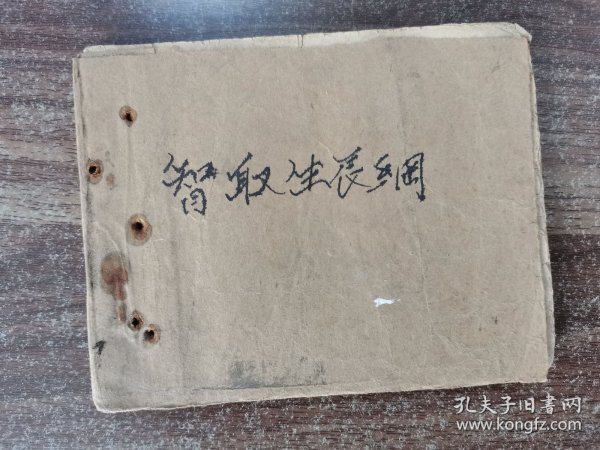 智取生辰纲
孔夫子旧书网
www.kongfz.com